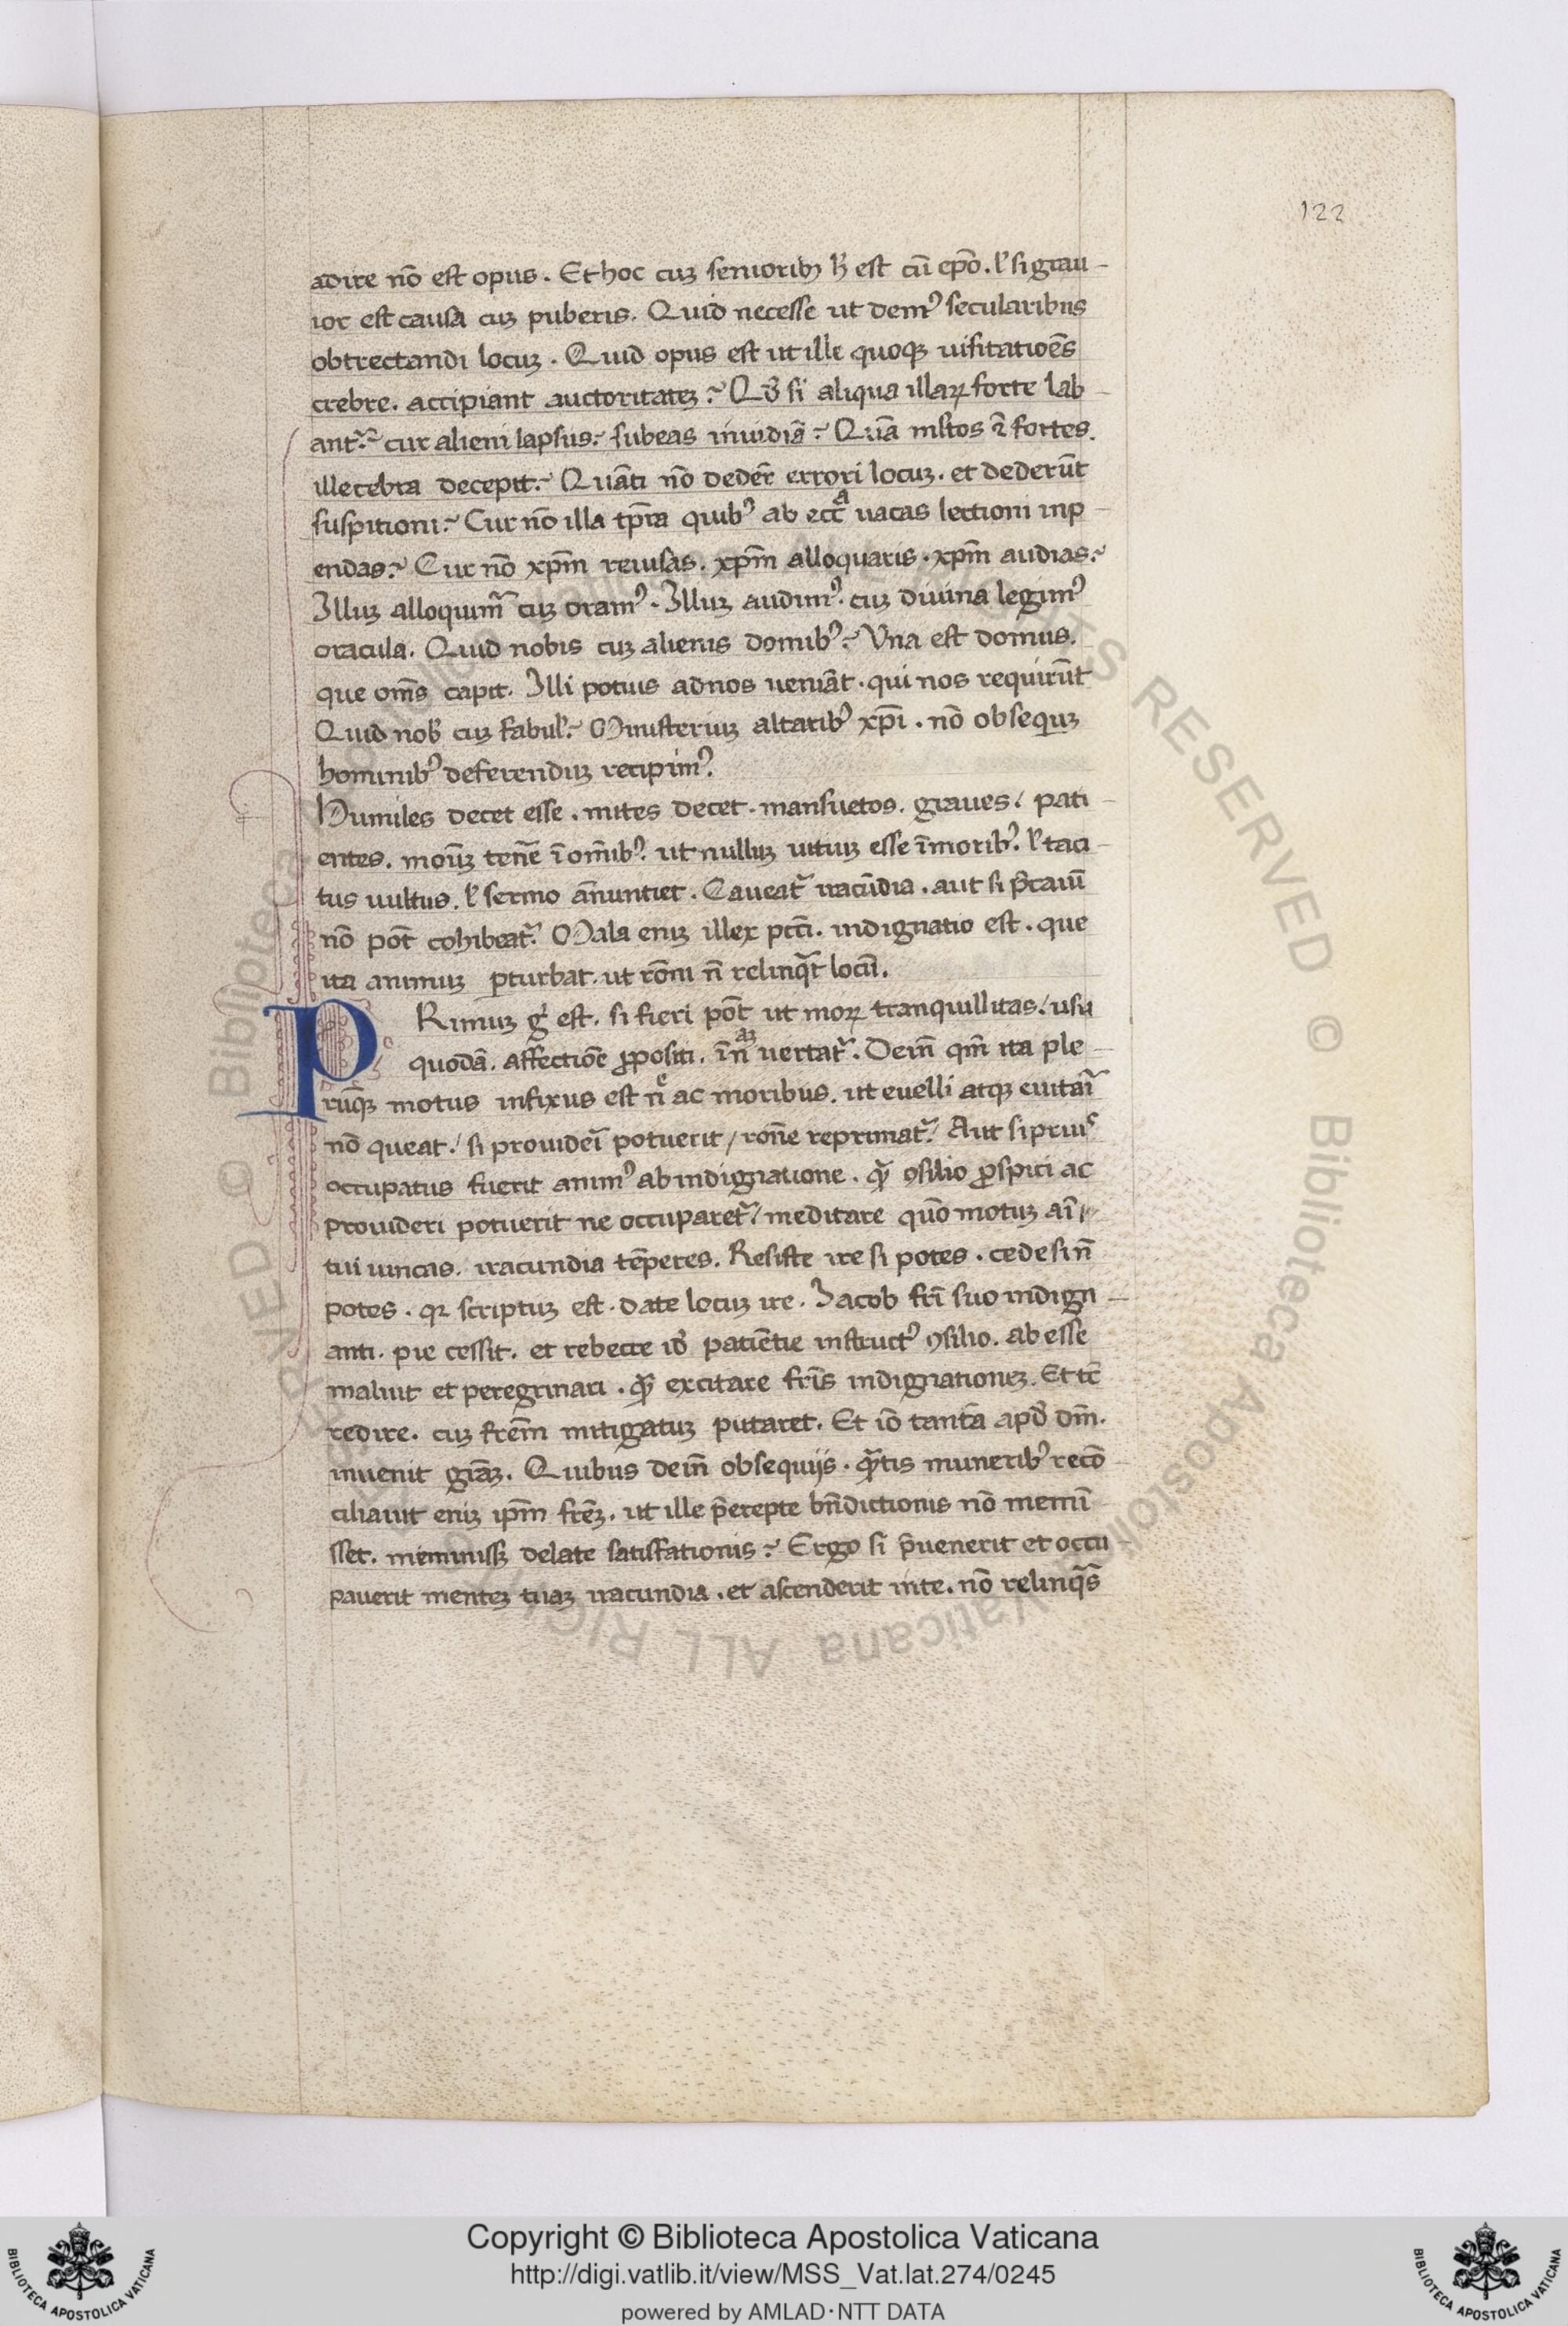 122
adire nō est opus. Et hoc cuꝫ senioribꝫ hͦ est cū ep̄o. ł si grau-
ior est causa cuꝫ puberis. Quid necesse ut demꝰ secularibus
obtrectandi locuꝫ. Quid opus est ut ille quoqꝫ uisitatiōes
crebre. accipiant auctoritateꝫ? Qđ si aliqua illaꝝ forte lab-
ant᷑? cur alieni lapsus? subeas inuidiā? Quā ml̄tos ⁊ fortes.
illecebra decepit? Quāti nō dedeř errori locuꝫ. et dederūt
suspitioni? Cur nō illa tp̄ra quibꝰ ab eccͣ uacas lectioni inp-
endas? Cur nō xp̄m reuisas. xp̄m alloquaris. xp̄m audias?
Illuꝫ alloquim᷑ cuꝫ oramꝰ. Illuꝫ audimꝰ. cuꝫ diuina legimꝰ
oracula. Quid nobis cuꝫ alienis domibꝰ? Una est domus.
que om̄s capit. Illi potius ad nos ueniāt. qui nos requirūt
Quid nob̛ cuꝫ fabul̛? Ministeriuꝫ altaribꝰ xp̄i. nō obsequiuꝫ
hominibꝰ deferenduꝫ recipimꝰ.
Humiles decet esse. mites decet. mansuetos. graues / pati-
entes. moduꝫ tenēe ī om̄ibꝰ. ut nulluꝫ uitiuꝫ esse ī moribꝰ. ł taci-
tus uultus. ł sermo ānuntiet. Caueat᷑ iracūdia. aut si p̄caui᷑
nō pōt cohibeat᷑. Mala eniꝫ illex pcc̄i. indignatio est. que
ita animuꝫ ꝑturbat. ut rōni n̄ relinqͣt locū.
PRimuꝫ gͥ est. si fieri pōt ut moꝝ tranquillitas / usu
quodā. affectiōe ꝓpositi. ī nͣꝫ uertat᷑. Dein̄ qm̄ ita ple-
rūqꝫ motus infixus est nͤ ac moribus. ut euelli atqꝫ euitari᷑
nō queat / si prouideri᷑ potuerit / rōne reprimat᷑ / Aut si priuˢ
occupatus fuerit animꝰ ab indignatione. qͣ̄ ꝯsilio ꝓspici ac
prouideri potuerit ne occuparet᷑ / meditare quō motuꝫ aī
tui uincas. iracundia tēperes. Resiste ire si potes. cede si n̄
potes. qꝛ scriptuꝫ est. date locuꝫ ire. Iacob fr̄i suo indign-
anti. pie cessit. et rebecce iđ patiētie instructꝰ ꝯsilio. ab esse
maluit et peregrinari. qͣ̄ excitare fr̄is indignationeꝫ. Et tc̄
redire. cuꝫ fr̄em mitigatuꝫ putaret. Et iō tantā apđ dm̄.
inuenit grā̄ꝫ. Quibus dein̄ obsequijs. qͣ̄tis muneribꝰ recō-
ciliauit eniꝫ ip̄m fr̄eꝫ. ut ille p̄erepte bn̄dictionis nō memī-
sset. meminissꝫ delate satisfationis? Ergo si p̄uenerit et occu-
pauerit menteꝫ tuaꝫ iracundia. et ascenderit in te. nō relinqͣs
Copyright © Biblioteca Apostolica Vaticana
http://digi.vatlib.it/view/MSS_Vat.lat.274/0245
powered by AMLAD·NTT DATA